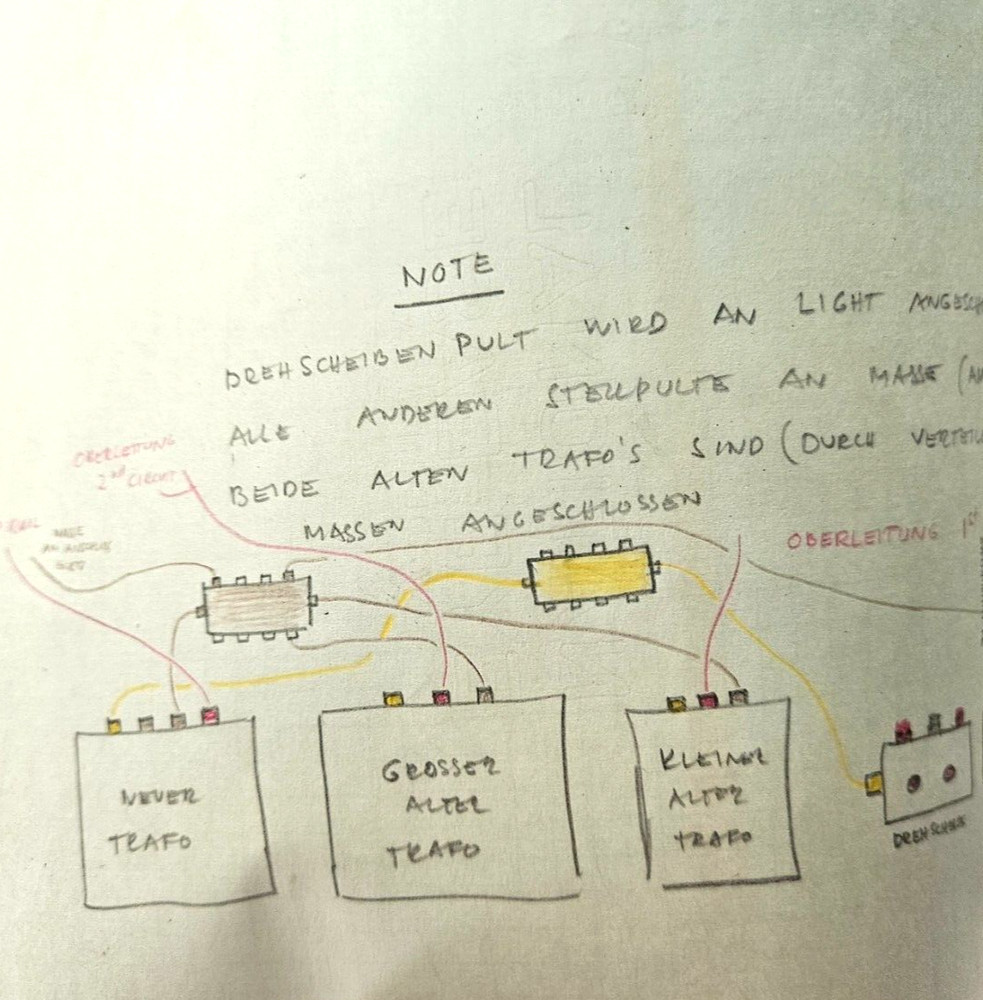 NOTE
DREHSCHEIBEN PULT WIRD AN LIGHT
ALLE ANDEREN STELLPULTE AN MASSE
BEIDE ALTEN TRAFO'S SIND (DURCH
MASSEN ANGESCHLOSSEN
OBERLEITUNG
2nd CIRCUIT
OBERLEITUNG 1st
NEUER
TRAFO
GROSSER
ALTER
TRAFO
KLEINER
ALTER
TRAFO
DREHSCHEIBE